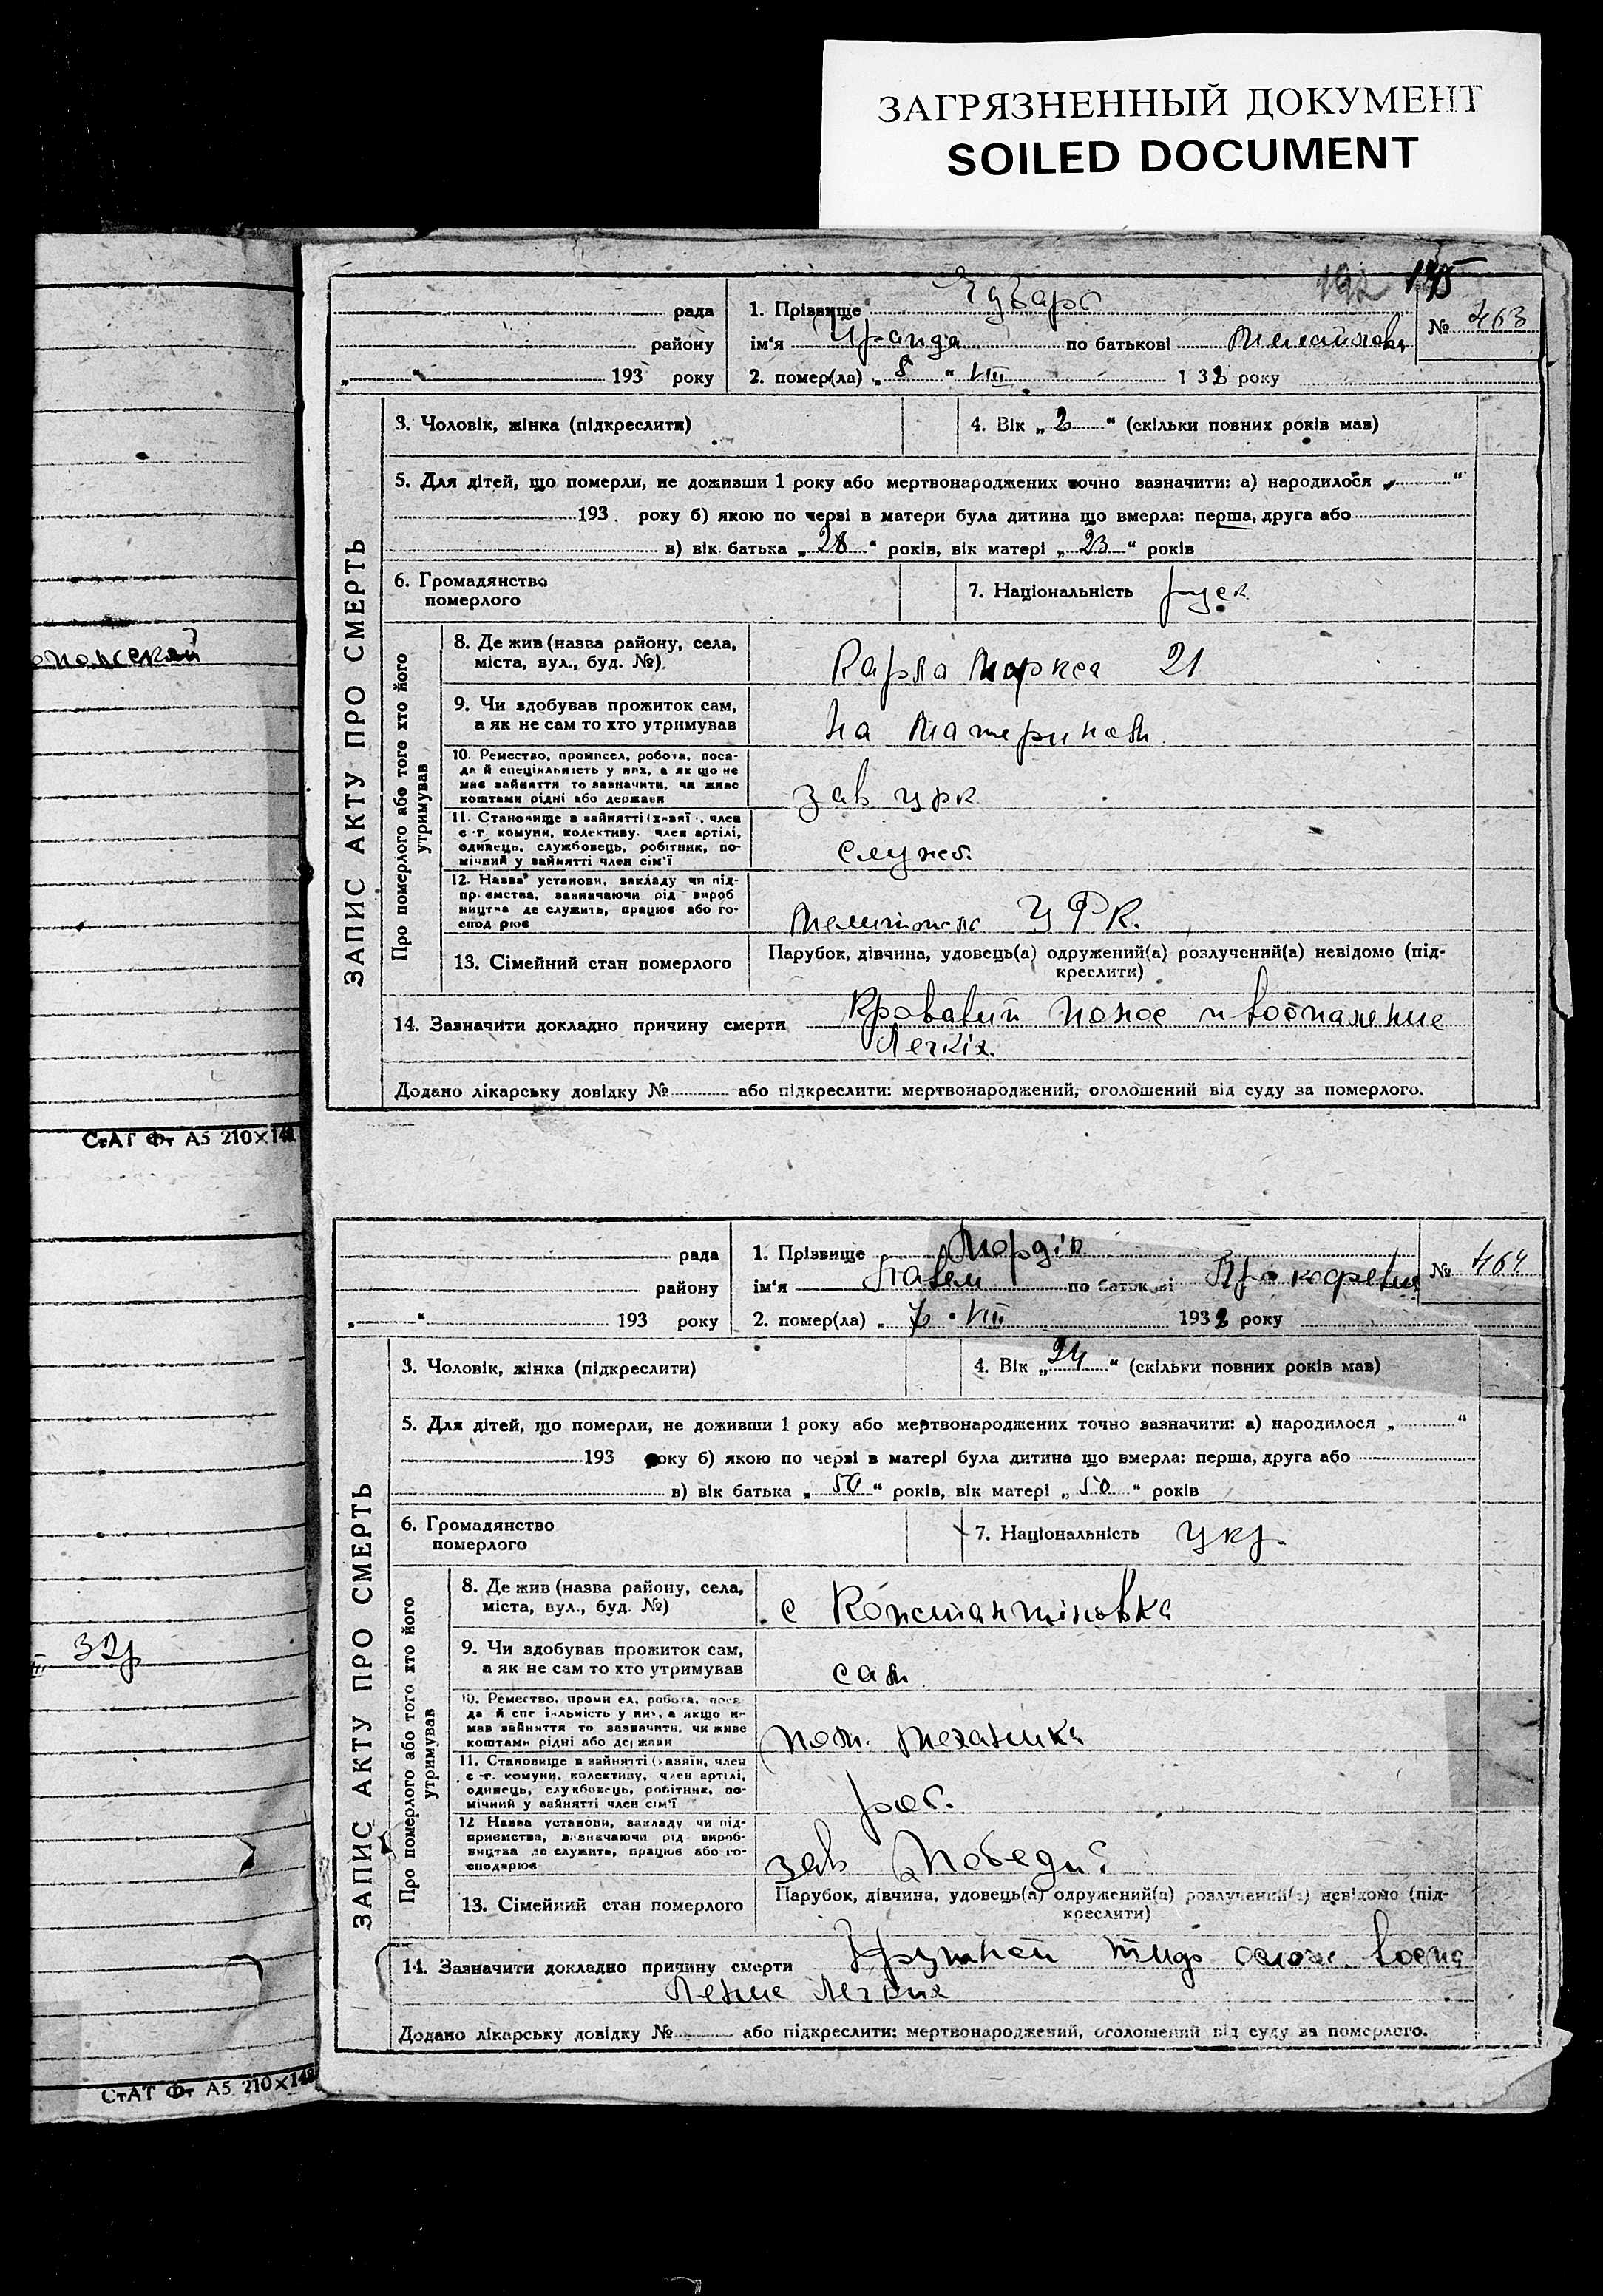 ЗАГРЯЗНЕННЫЙ ДОКУМЕНТ
SOILED DOCUMENT
192 145
рада
1. Прізвище
№ 463
району
ім'я по батькові
„ “ 193 року
2. помер(ла) „ 8 “ VIII 1 32 року
3. Чоловік, жінка (підкреслити)
4. Вік „ 2 “ (скільки повних років мав)
5. Для дітей, що померли, не доживши 1 року або мертвонароджених точно зазначити: а) народилося „ “
193 року б) якою по черві в матери була дитина що вмерла: перша, друга або
в) вік батька „ 28 “ років, вік матері „ 23 “ років
6. Громадянство
померлого
7. Національність русск
ЗАПИС АКТУ ПРО СМЕРТЬ
Про померлого або того хто його
утримував
8. Де жив (назва району, села,
міста, вул., буд. №).
Карла Маркса 21
9. Чи здобував прожиток сам,
а як не сам то хто утримував
На
10. Ремество, промисел, робота, поса-
да й спеціяльність у них, а як що не
мав зайняття то зазначити, чи живе
коштами рідні або держави
зав црк
11. Становище в зайнятті (хазяїн, член
с.-г. комуни, колективу, член артілі,
одинець, службовець, робітник, по-
мічний у зайнятті член сім'ї
служб.
12. Назва установи, закладу чи під-
приємства, зазначаючи рід вироб
ництва де служить, працює або го-
сподарює
ЦРК.
13. Сімейний стан померлого
Парубок, дівчина, удовець(а) одружений(а) розлучений(а) невідомо (під-
креслити)
14. Зазначити докладно причину смерти Кровавий понос и воспаление
Легкіх.
Додано лікарську довідку № або підкреслити: мертвонароджений, оголошений від суду за померлого.
СтАТ Фт А5 210×148
рада
1. Прізвище Мордік
№ 464
району
ім'я Павел по батькові
„ “ 193 року
2. помер(ла) „ “ VIII 1932 року
3. Чоловік, жінка (підкреслити)
4. Вік „ 24 “ (скільки повних років мав)
5. Для дітей, що померли, не доживши 1 року або мертвонароджених точно зазначити: а) народилося „ “
193 року б) якою по черзі в матері була дитина що вмерла: перша, друга або
в) вік батька „ 50 “ років, вік матері „ 50 “ років
6. Громадянство
померлого
7. Національність укр.
ЗАПИС АКТУ ПРО СМЕРТЬ
Про померлого або того хто його
утримував
8. Де жив (назва району, села,
міста, вул., буд. №)
с Константіновка
9. Чи здобував прожиток сам,
а як не сам то хто утримував
сам
10. Ремество, промисел, робота, поса
да й спеціяльність у них, а якщо не
мав зайняття то зазначити, чи живе
коштами рідні або держави
пом. механика
11. Становище в зайнятті (хазяїн, член
с.-г. комуни, колективу, член артілі,
одинець, службовець, робітник, по-
мічний у зайнятті член сім'ї
роб.
12 Назва установи, закладу чи під-
приємства, визначаючи рід вироб-
ництва де служить, працює або го-
сподарює
зав
13. Сімейний стан померлого
Парубок, дівчина, удовець(а) одружений(а) розлучений(а) невідомо (під-
креслити)
14. Зазначити докладно причину смерти
Легкия
Додано лікарську довідку № або підкреслити: мертвонароджений, оголошений від суду за померлого.
32р
СтАТ Фт А5 210×148